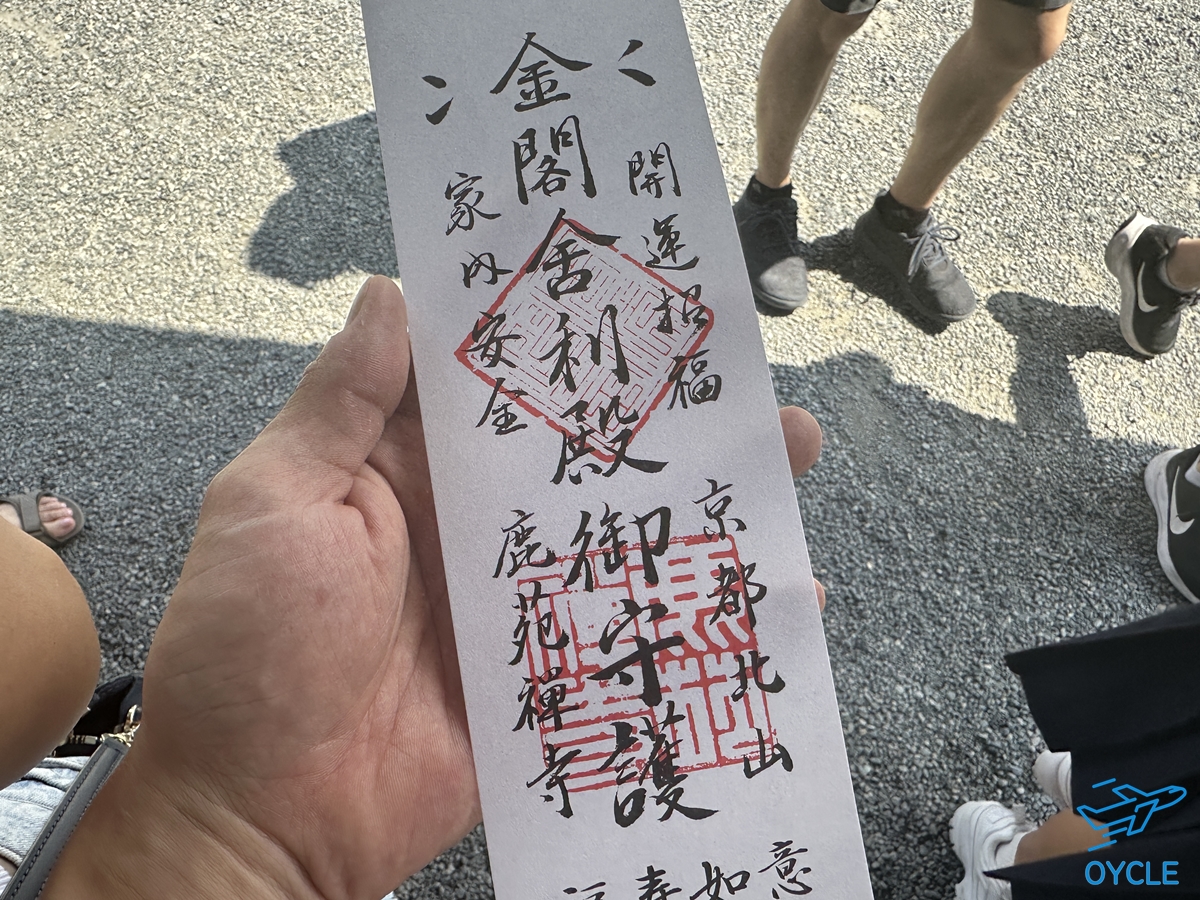 金閣舎利殿御守護
開運招福
家内安全
京都北山
鹿苑禅寺
如意
OYCLE